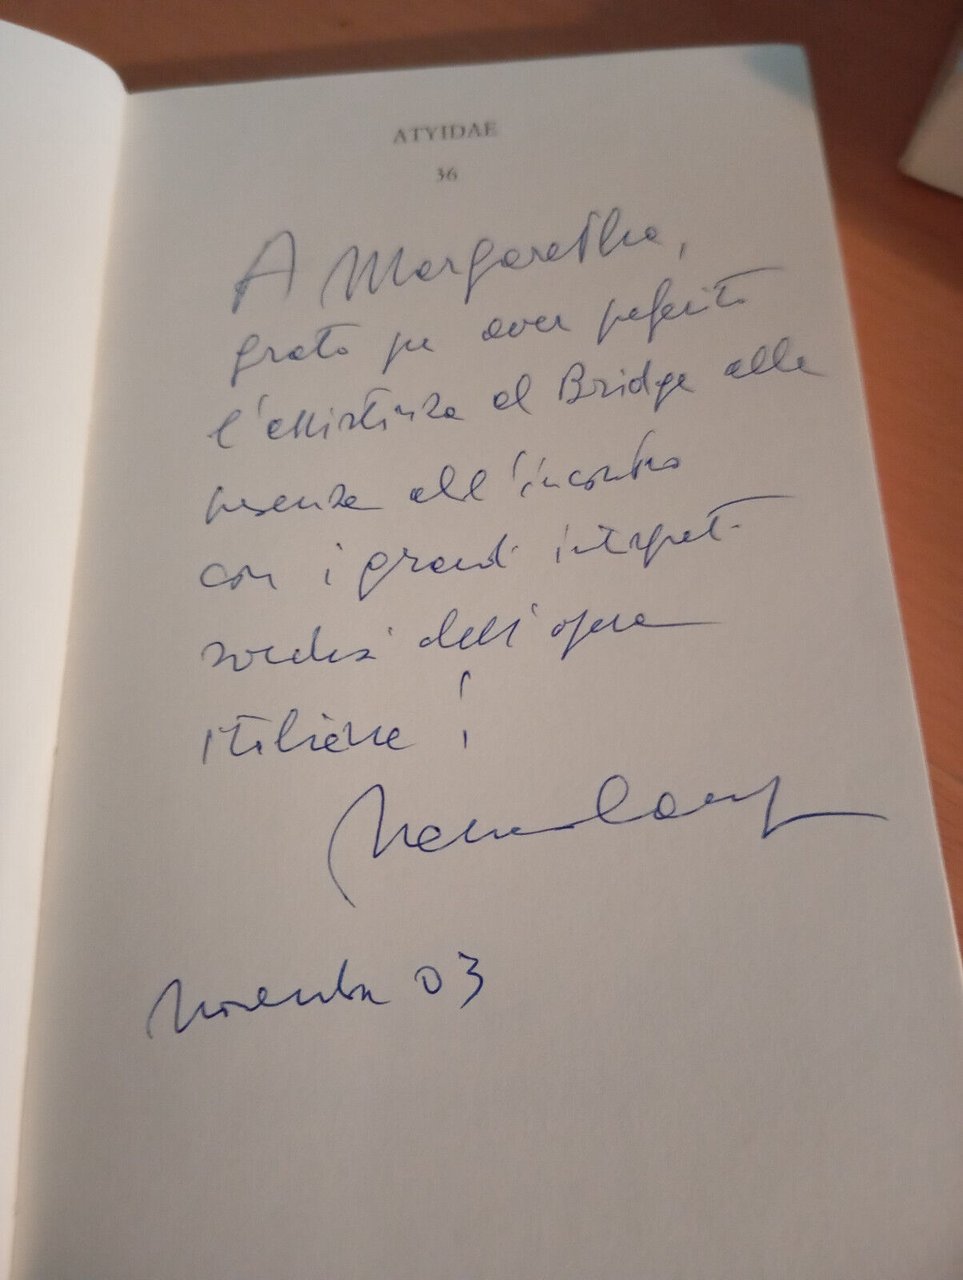 ATYIDAE
36
A Margaretha,
grato per aver preferito
l'assistenza al Bridge alla
presenza all'incontro
con i grandi interpreti
svedesi dell'opera
italiana!
Novembre 03